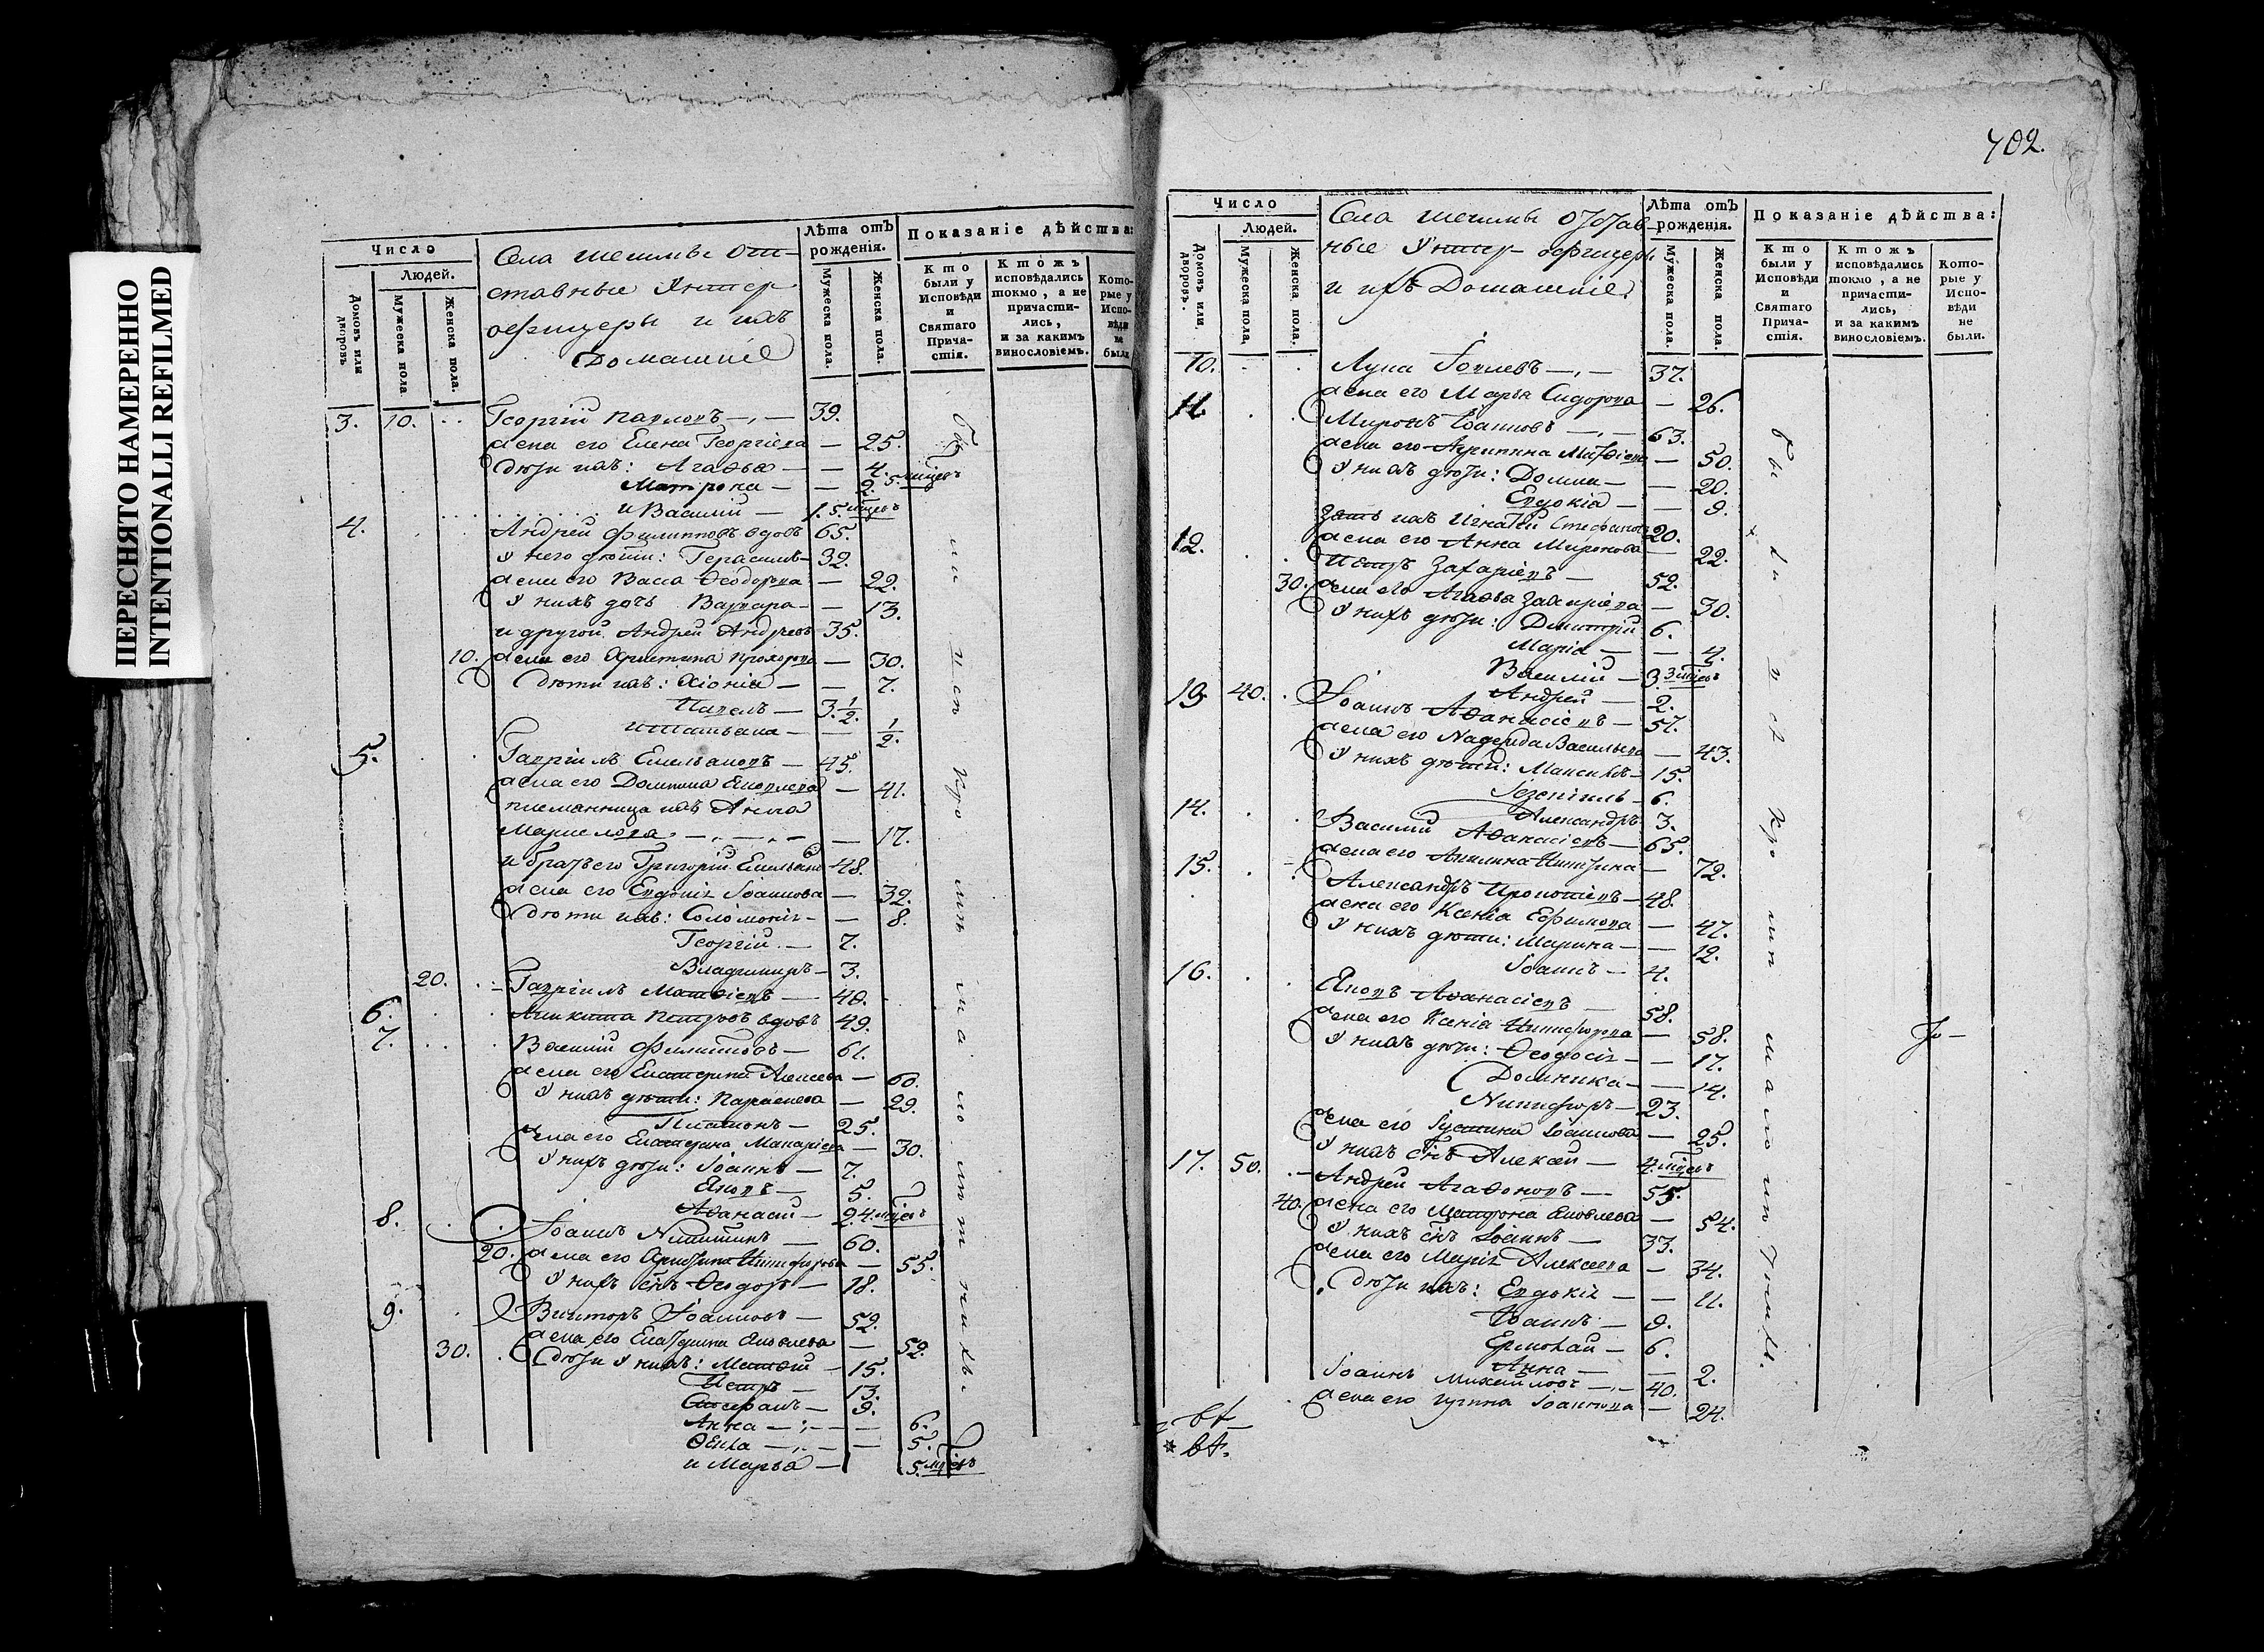 ПЕРЕСНЯТО НАМЕРЕННО
INTENTIONALLI REFILMED
Число
Людей.
Домовъ или дворовъ
Мужеска пола
Женска пола.
Села Шешмы От-
ставные Унтер
офицеры и ихъ
Домашніе
Лѣта отъ рождения.
Мужеска пола.
Женска пола.
Показаніе дѣйства:
Кто были у Исповѣди и Святаго Прича-стія.
Ктожъ исповѣдались токмо, а не причасти-лись, и за какимъ винословіемъ.
Кото-рые у Испо-вѣди не были
3. 10. Георгій Павловъ 39.
жена его Елена Георгіева 25.
дѣти ихъ: Агаѳья 4.
Матрона 2. 5. мцовъ
и Василій 1. 5. мцовъ
4. Андрей Филипповъ вдовъ 65.
у него дѣти: Герасимъ 32.
жена его Васса Ѳеодорова 22.
у нихъ дочь Варвара 13.
и другой Андрей Андреевъ 35.
10. жена его Христина Прохорова 30.
дѣти ихъ: Хіонія 7.
Павелъ 3. 1/2.
и Татьяна 1/2.
5. Гавріилъ Емельановъ 45.
жена его Домника Яковлева 41.
племянница ихъ Анна
17.
и братъ его Григорій Емельановъ 48.
жена его Евдокія Іоаннова 32.
дѣти ихъ: Соломонія 8.
Георгій 7.
Владимиръ 3.
20. Гавріилъ Матвіевъ 40.
6. Никита Петровъ вдовъ 49.
7. Василій Филиповъ 61.
жена его Екатерина Алексева 60.
у нихъ дѣти: Параскева 29.
Платонъ 25.
жена его Екатерина Макаріева 30.
у нихъ дѣти: Іоаннъ 7.
Яковъ 5.
Аѳанасій 2. 4. мцовъ
8. Іоаннъ Никитинъ 60.
20. жена его Христина Никифорова 55.
у нихъ снъ Ѳеодоръ 18.
9. Викторъ Іоанновъ 52.
жена его Екатерина Яковлева 52.
30. дѣти у нихъ: Матвій 15.
Петръ 13.
Стефанъ 9.
Анна 6.
Ѳекла 5.
и Марья 5. мцовъ
702.
Число
Людей.
Домовъ или дворовъ.
Мужеска пола,
Женска пола.
Села Шешмы Отстав-
ные Унтер офицеры
и ихъ Домашніе
Лѣта отъ рожденія.
Мужеска пола.
Женска пола.
Показаніе дѣйства:
Кто были у Исповѣди и Святаго Прича-стія.
Ктожъ исповѣдались токмо, а не причасти-лись, и за какимъ винословіемъ.
Кото-рые у Испо-вѣди не были.
10. Лука 37.
жена его Марья Сидорова 26.
11. Миронъ Іоанновъ 63.
жена его Агрипина 50.
у нихъ дѣти: Домна 20.
Евдокія 9.
Зять ихъ Игнатій Стефановъ 20.
жена его Анна Миронова 22.
12. Петръ Захаріевъ 52.
30. жена его Агаѳья Захаріева 30.
у нихъ дѣти: Димитрій 6.
Марія 4.
Василій 3. 3 мцовъ
40. Андрей 2.
13. Іоаннъ Аѳанасіевъ 57.
жена его Надежда Васильева 43.
у нихъ дѣти: Максимъ 15.
Іезекіиль 6.
Александръ 3.
14. Василій Аѳанасіевъ 65.
жена его Акилина 72.
15. Александръ Прокопіевъ 48.
жена его Ксенія Ефимова 47.
у нихъ дѣти: Марина 12.
Іоаннъ 4.
16. Яковъ Аѳанасіевъ 58.
жена его Ксенія Никифорова 58.
у нихъ дѣти: Ѳеодосія 17.
Домника 14.
Никифоръ 23.
жена его Іустина Іоаннова 25.
50. у нихъ снъ Алексѣй 4. мцовъ
17. Андрей Агаѳоновъ 55.
40. жена его Матрона Яковлева 54.
у нихъ снъ Іоаннъ 33.
жена его Марія Алексеева 34.
дѣти ихъ: Евдокія 11.
Іоаннъ 9.
Ермолай 6.
Анна 2.
Іоаннъ Михайловъ 40.
жена его Ирина Іоаннова 24.